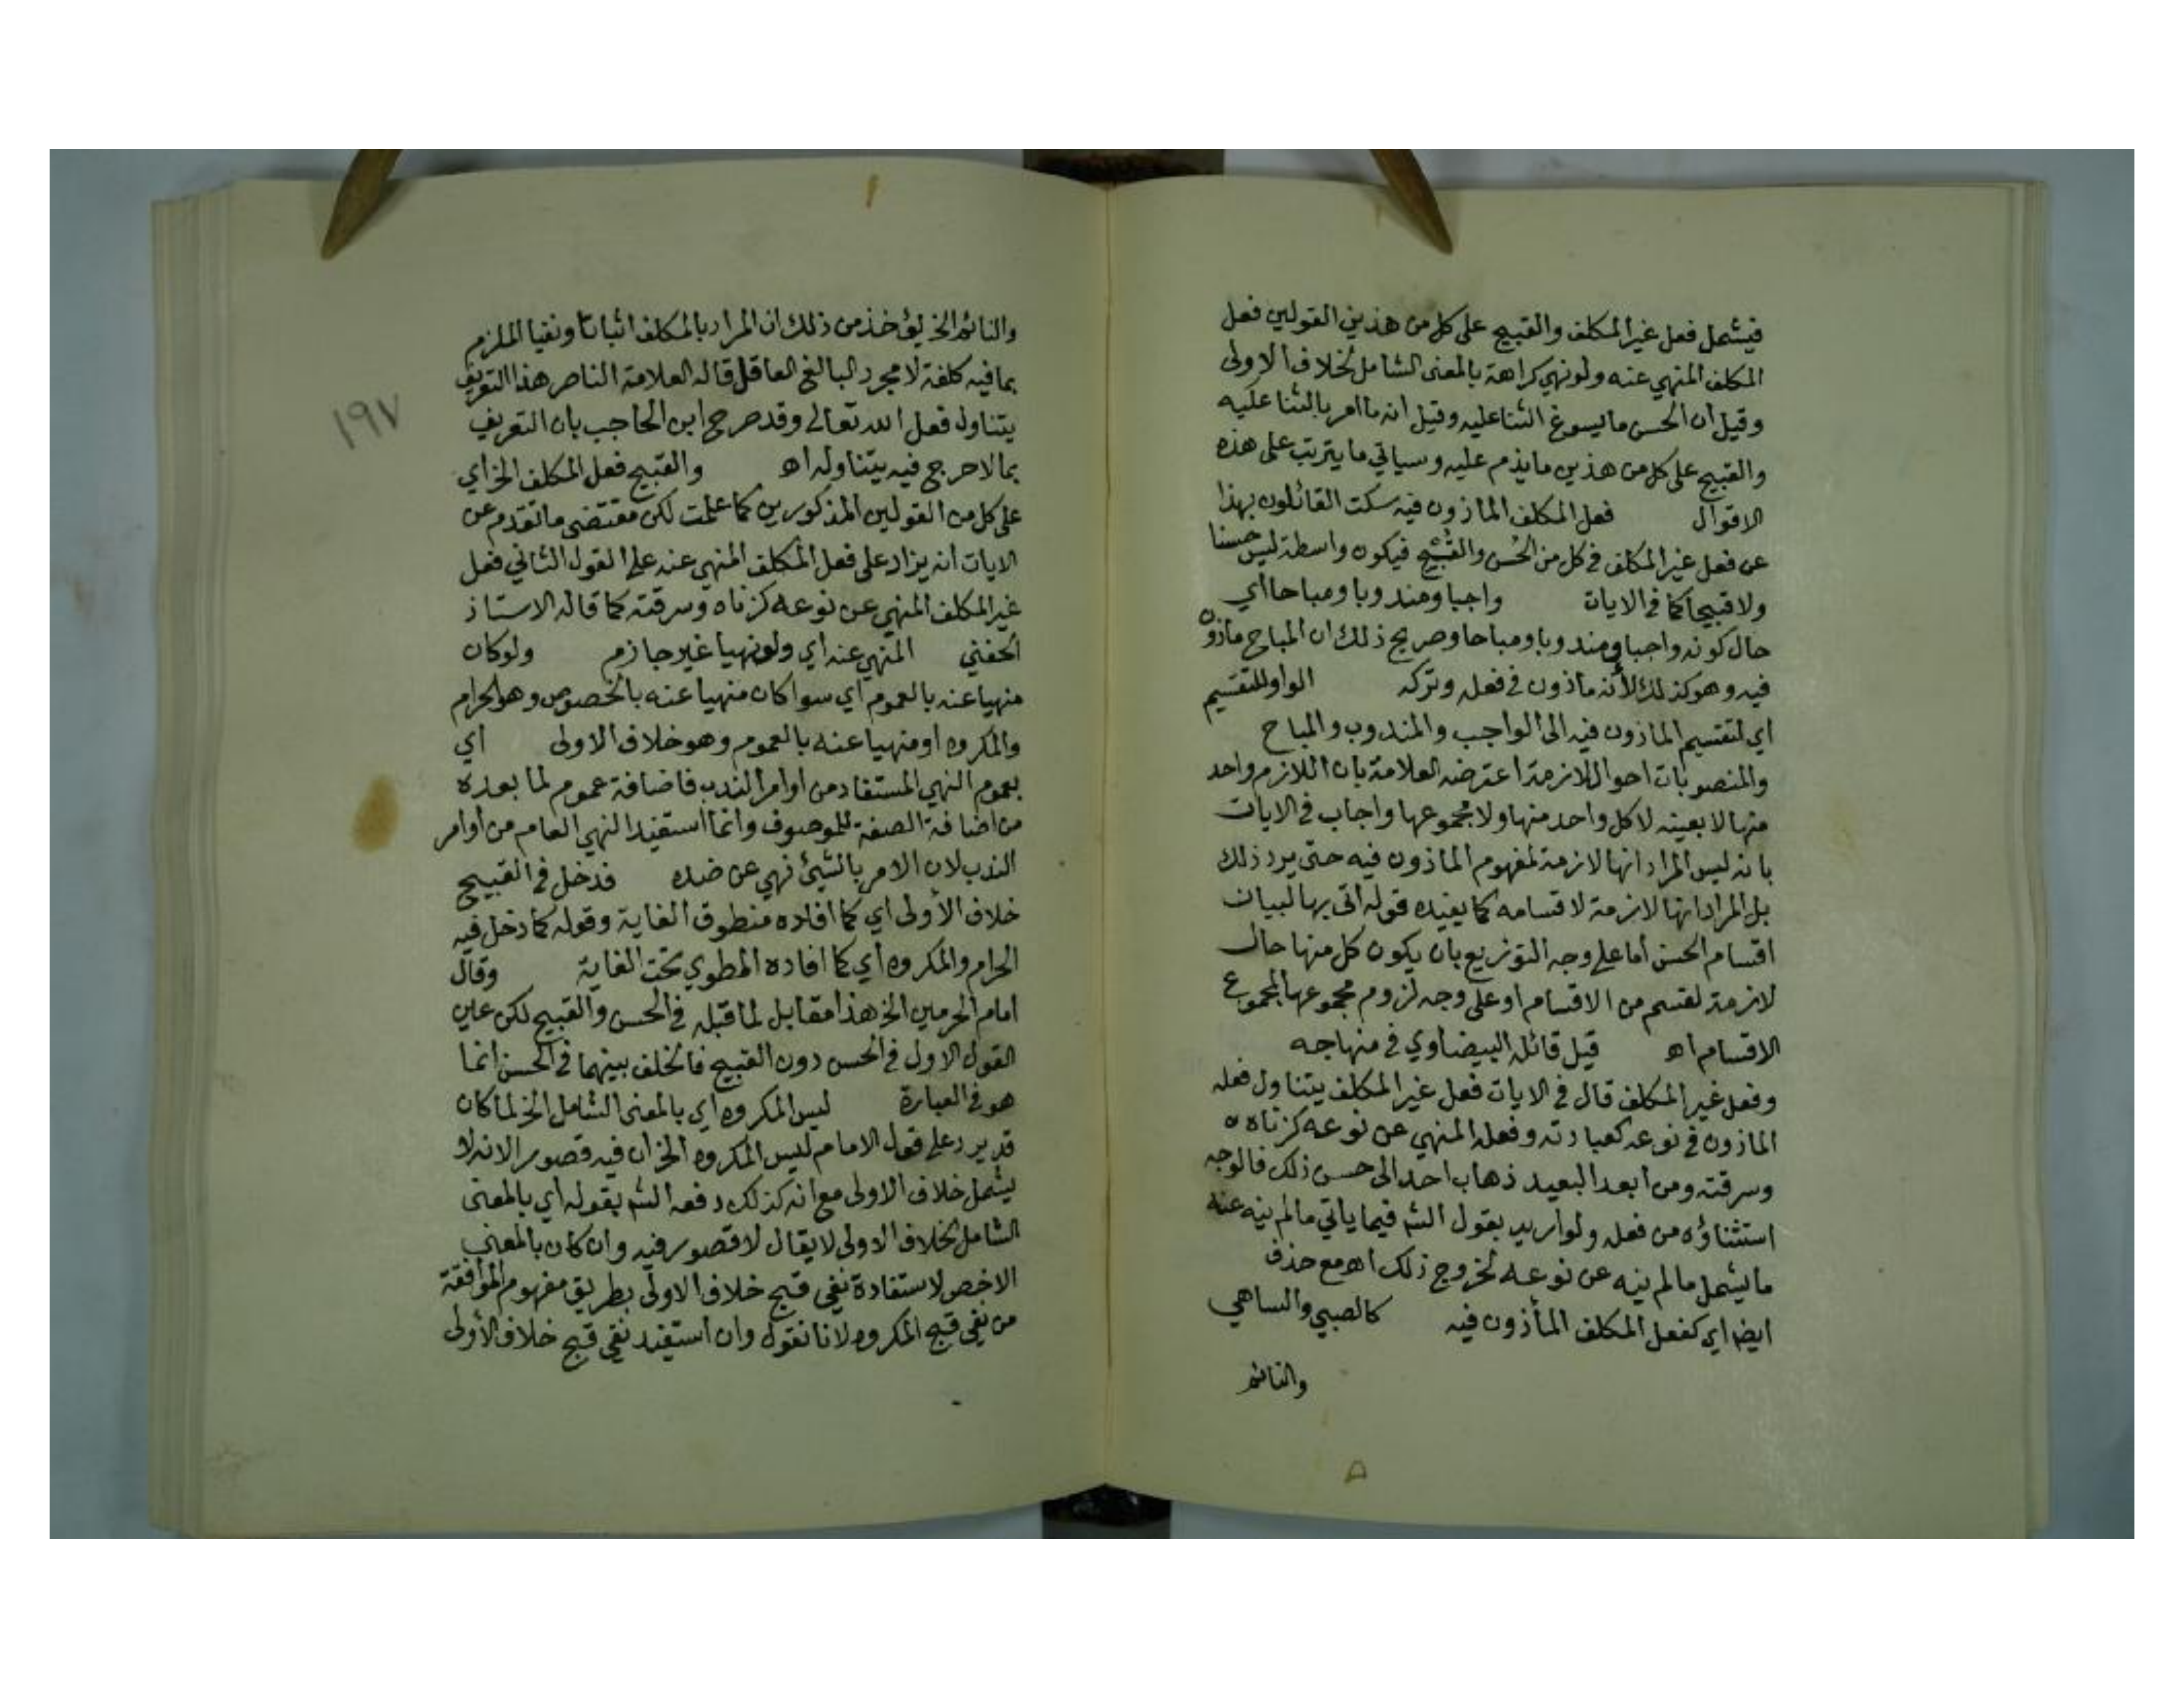 فيشمل فعل غير المكلف والقبيح على كل من هذين القولين فعل
المكلف المنهي عنه ولو نهي كراهة بالمعنى الشامل لخلاف الاولى
وقيل ان الحسن ما يسوغ الثنا عليه وقيل انه ما امر بالثنا عليه
والقبيح على كل من هذين ما يذم عليه وسياتي ما يترتب على هذه
الاقوال فعل المكلف الماذون فيه سكت القائلون بهذا
عن فعل غير المكلف في كل من الحسن والقبيح فيكون واسطة ليس حسنا
ولا قبيحا كما في الايات واجبا ومندوبا ومباحا اي
حال كونه واجبا ومندوبا ومباحا وصريح ذلك ان المباح ماذون
فيه وهو كذلك لأنه ماذون في فعله وتركه الواو للتقسيم
اي لتقسيم الماذون فيه الى الواجب والمندوب والمباح
والمنصوبات احوال لازمة اعترضه العلامة بان اللازم واحد
منها لا بعينه لا كل واحد منها ولا مجموعها واجاب في الايات
بانه ليس المراد انها لازمة لمفهوم الماذون فيه حتى يرد ذلك
بل المراد انها لازمة لاقسامه كما يفيده قوله اتى بها لبيان
اقسام الحسن اما على وجه التوزيع بان يكون كل منها حال
لازمة لقسم من الاقسام او على وجه لزوم مجموعها لمجموع
الاقسام اه قيل قائله البيضاوي في منهاجه
وفعل غير المكلف قال في الايات فعل غير المكلف يتناول فعله
الماذون في نوعه كعبادته وفعله المنهي عن نوعه كزناه
وسرقته ومن ابعد البعيد ذهاب احد الى حسن ذلك فالوجه
استثناؤه من فعله ولو اريد بقول الشم فيما ياتي ما لم ينه عنه
ما يشمل ما لم ينه عن نوعه لخروج ذلك اه مع حذف
ايضا اي كفعل المكلف المأذون فيه كالصبي والساهي
والنائم
والنائم الخ يؤخذ من ذلك ان المراد بالمكلف اثباتا ونفيا الملزم
بما فيه كلفة لا مجرد البالغ العاقل قاله العلامة الناصر هذا التعريف
يتناول فعل الله تعالى وقد صرح ابن الحاجب بان التعريف
بما لا حرج فيه يتناوله اه والقبيح فعل المكلف الخ اي
على كل من القولين المذكورين كما علمت لكن مقتضى ما تقدم عن
الايات انه يزاد على فعل المكلف المنهي عنه على القول الثاني فعل
غير المكلف المنهي عن نوعه كزناه وسرقته كما قاله الاستاذ
الحفني المنهي عنه اي ولو نهيا غير جازم ولو كان
منهيا عنه بالعموم اي سوا كان منهيا عنه بالخصوص وهو الحرام
والمكروه او منهيا عنه بالعموم وهو خلاف الاولى اي
بعموم النهي المستفاد من اوامر الندب فاضافة عموم لما بعده
من اضافة الصفة للموصوف وانما استفيد النهي العام من أوامر
الندب لان الامر بالشيئ نهي عن ضده فدخل في القبيح
خلاف الأولى اي كما افاده منطوق الغاية وقوله كما دخل فيه
الحرام والمكروه اي كما افاده المطوي تحت الغاية وقال
امام الحرمين الخ هذا مقابل لما قبله في الحسن والقبيح لكن عين
القول الاول في الحسن دون القبيح فالخلف بينهما في الحسن انما
هو في العبارة ليس المكروه اي بالمعنى الشامل الخ لما كان
قد يرد على قول الامام ليس المكروه الخ ان فيه قصورا لانه لا
يشمل خلاف الاولى مع انه كذلك دفعه الشم بقوله اي بالمعنى
الشامل لخلاف الاولى لا يقال لا قصور فيه وان كان بالمعنى
الاخص لاستفادة نفي قبح خلاف الاولى بطريق مفهوم الموافقة
من نفي قبح المكروه لانا نقول وان استفيد نفي قبح خلاف الأولى
١٩٧